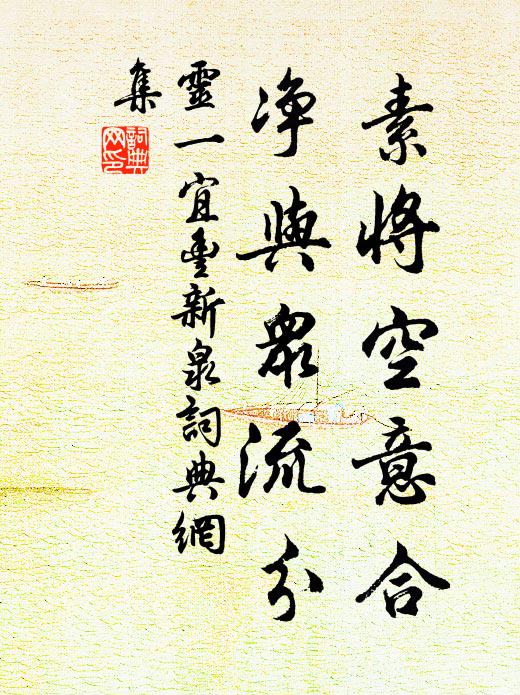 素將空意合
淨與眾流分
靈一宜豐新泉詞典網
集
詞典
网印